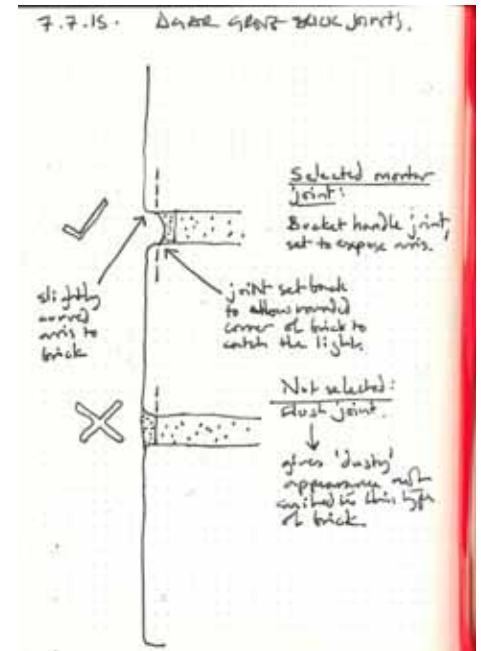 7.7.15. AGAR GROVE BRICK JOINTS.
Selected mortar
joint:
Bucket handle joint,
set to expose arris.
slightly
curved
arris to
brick
joint set back
to allow rounded
corner of brick to
catch the light.
Not selected:
flush joint.
gives 'dusty'
appearance not
suited to this type
of brick.